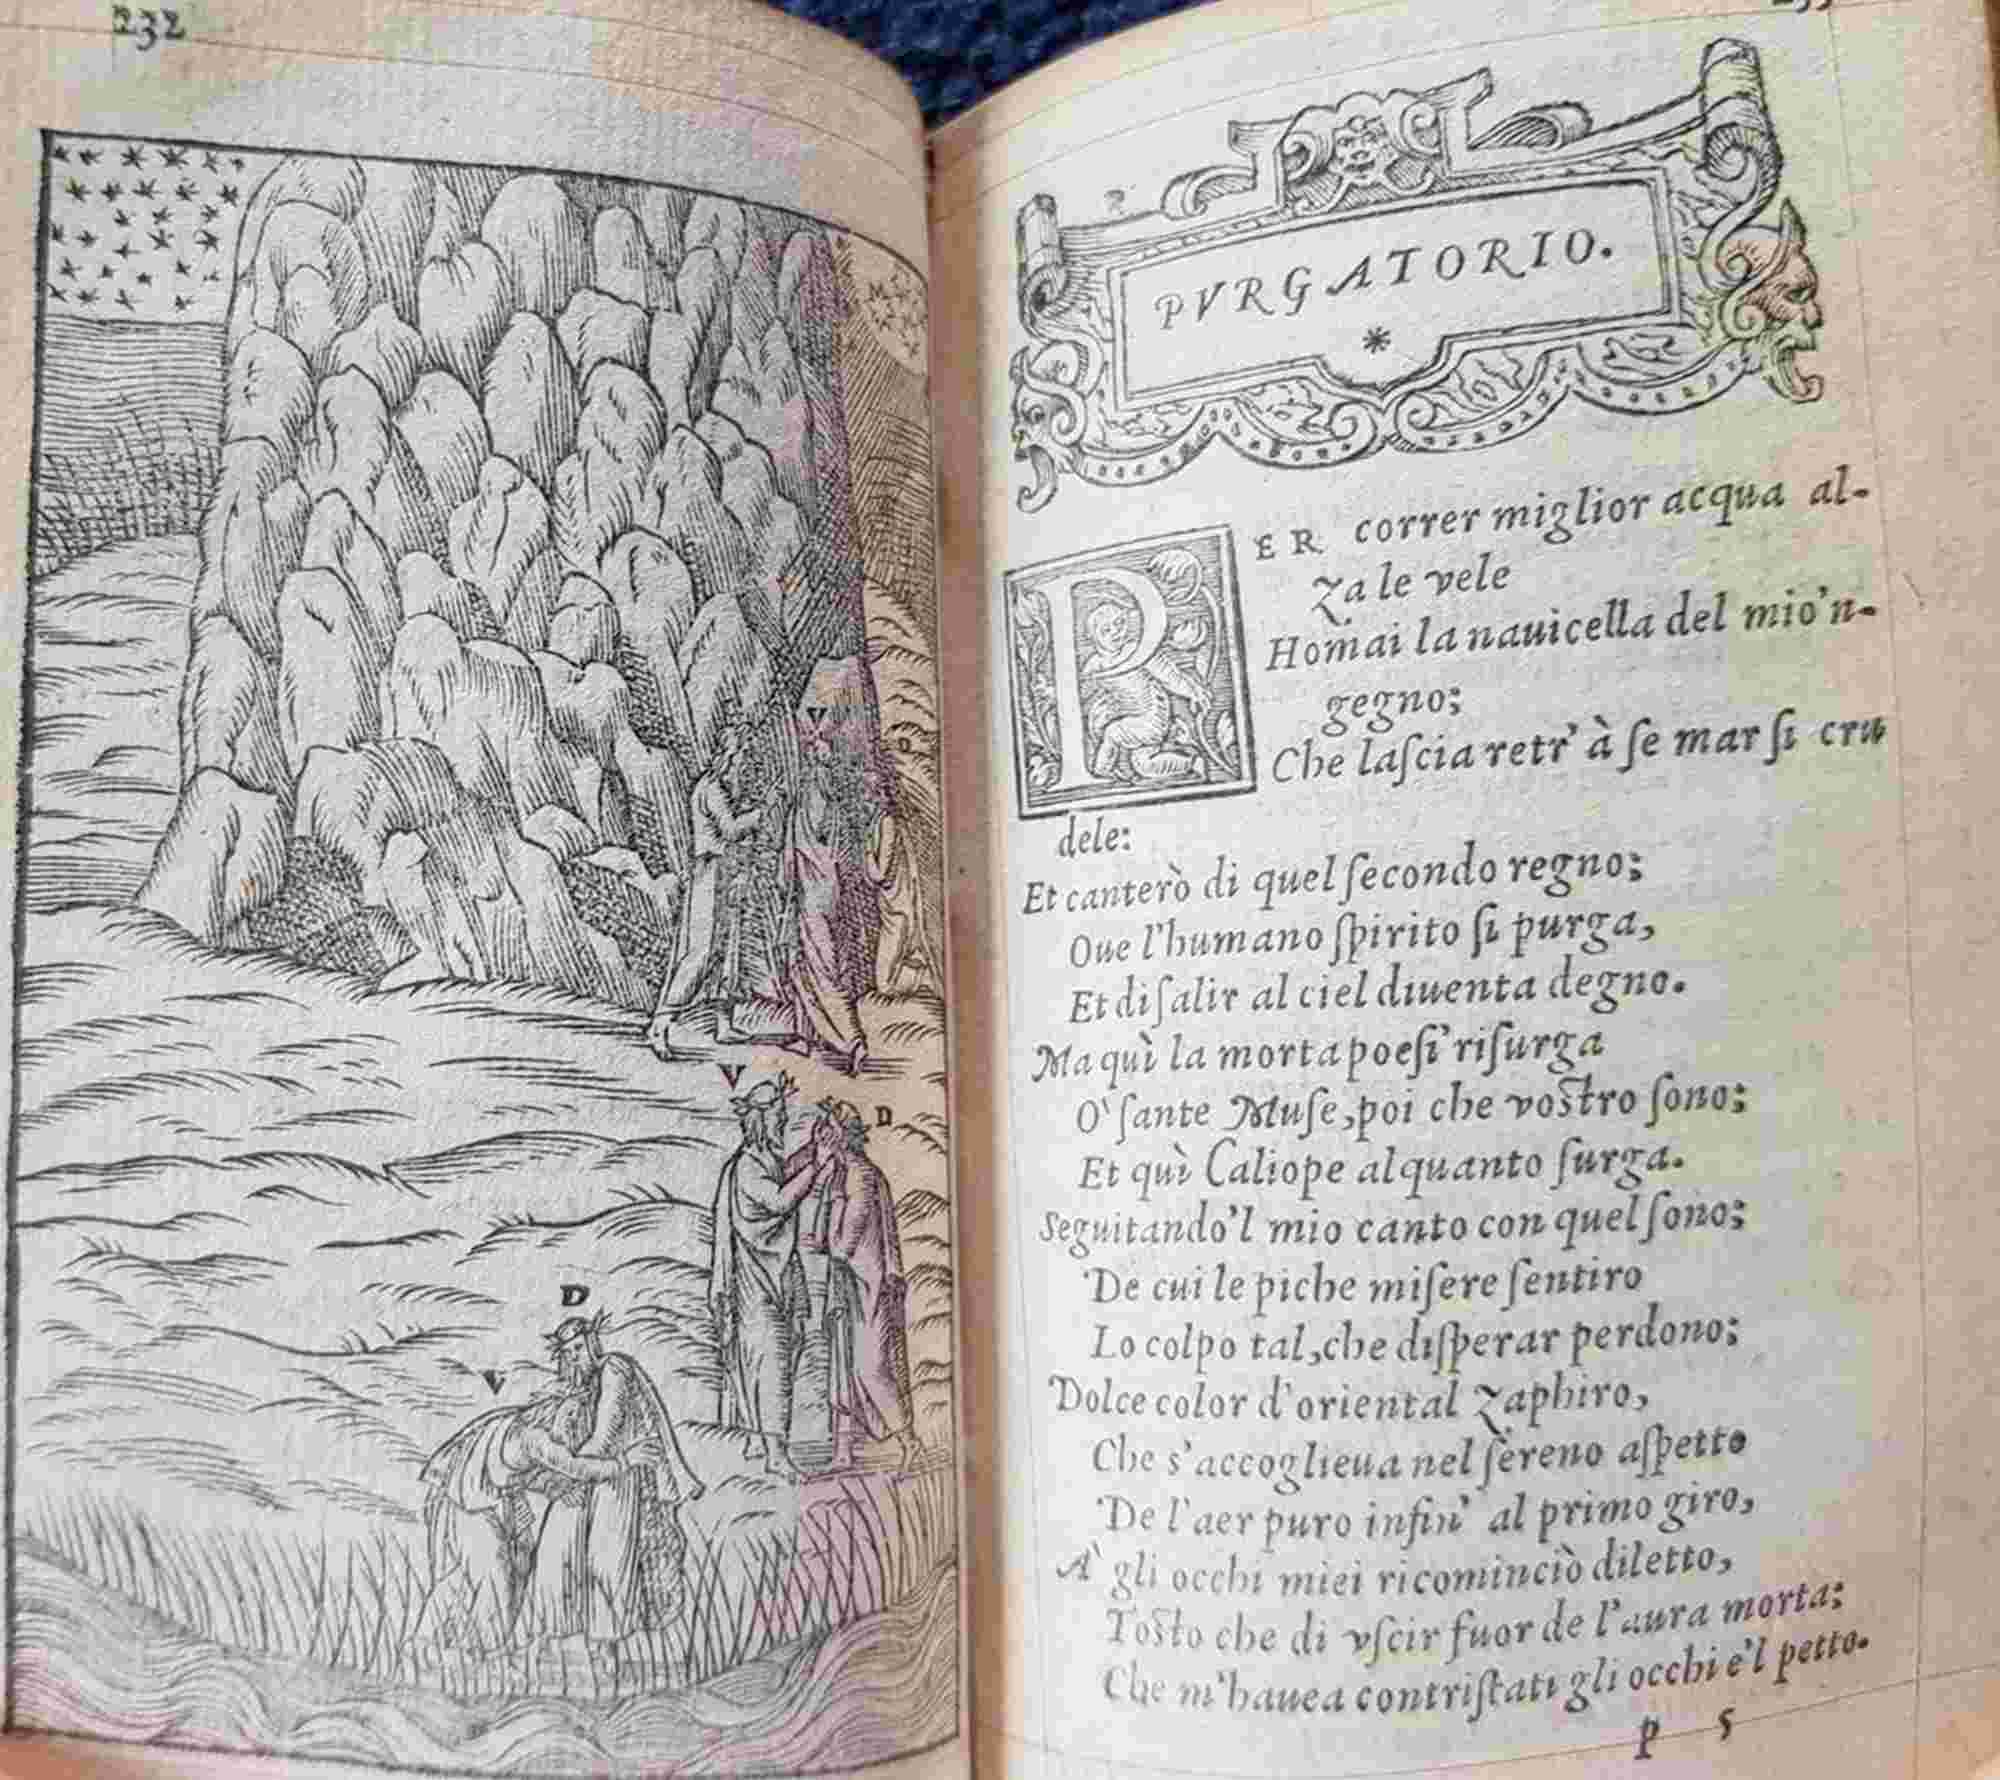 232
V
D
V
D
D
V
PVRGATORIO.
*
PER correr miglior acqua al-
za le vele
Homai la nauicella del mio'n-
gegno;
Che laſcia retr' à ſe mar ſi cru
dele:
Et canterò di quel ſecondo regno;
Oue l'humano ſpirito ſi purga,
Et di ſalir al ciel diuenta degno.
Ma quì la morta poeſi' riſurga
O' ſante Muſe, poi che voſtro ſono;
Et quì Caliope alquanto ſurga.
Seguitando'l mio canto con quel ſono;
De cui le piche miſere ſentiro
Lo colpo tal, che diſperar perdono;
Dolce color d'oriental zaphiro,
Che s'accoglieua nel ſereno aſpetto
De l'aer puro infin' al primo giro,
A' gli occhi miei ricominciò diletto,
Toſto che di vſcir fuor de l'aura morta;
Che m'hauea contriſtati gli occhi e'l petto.
p 5